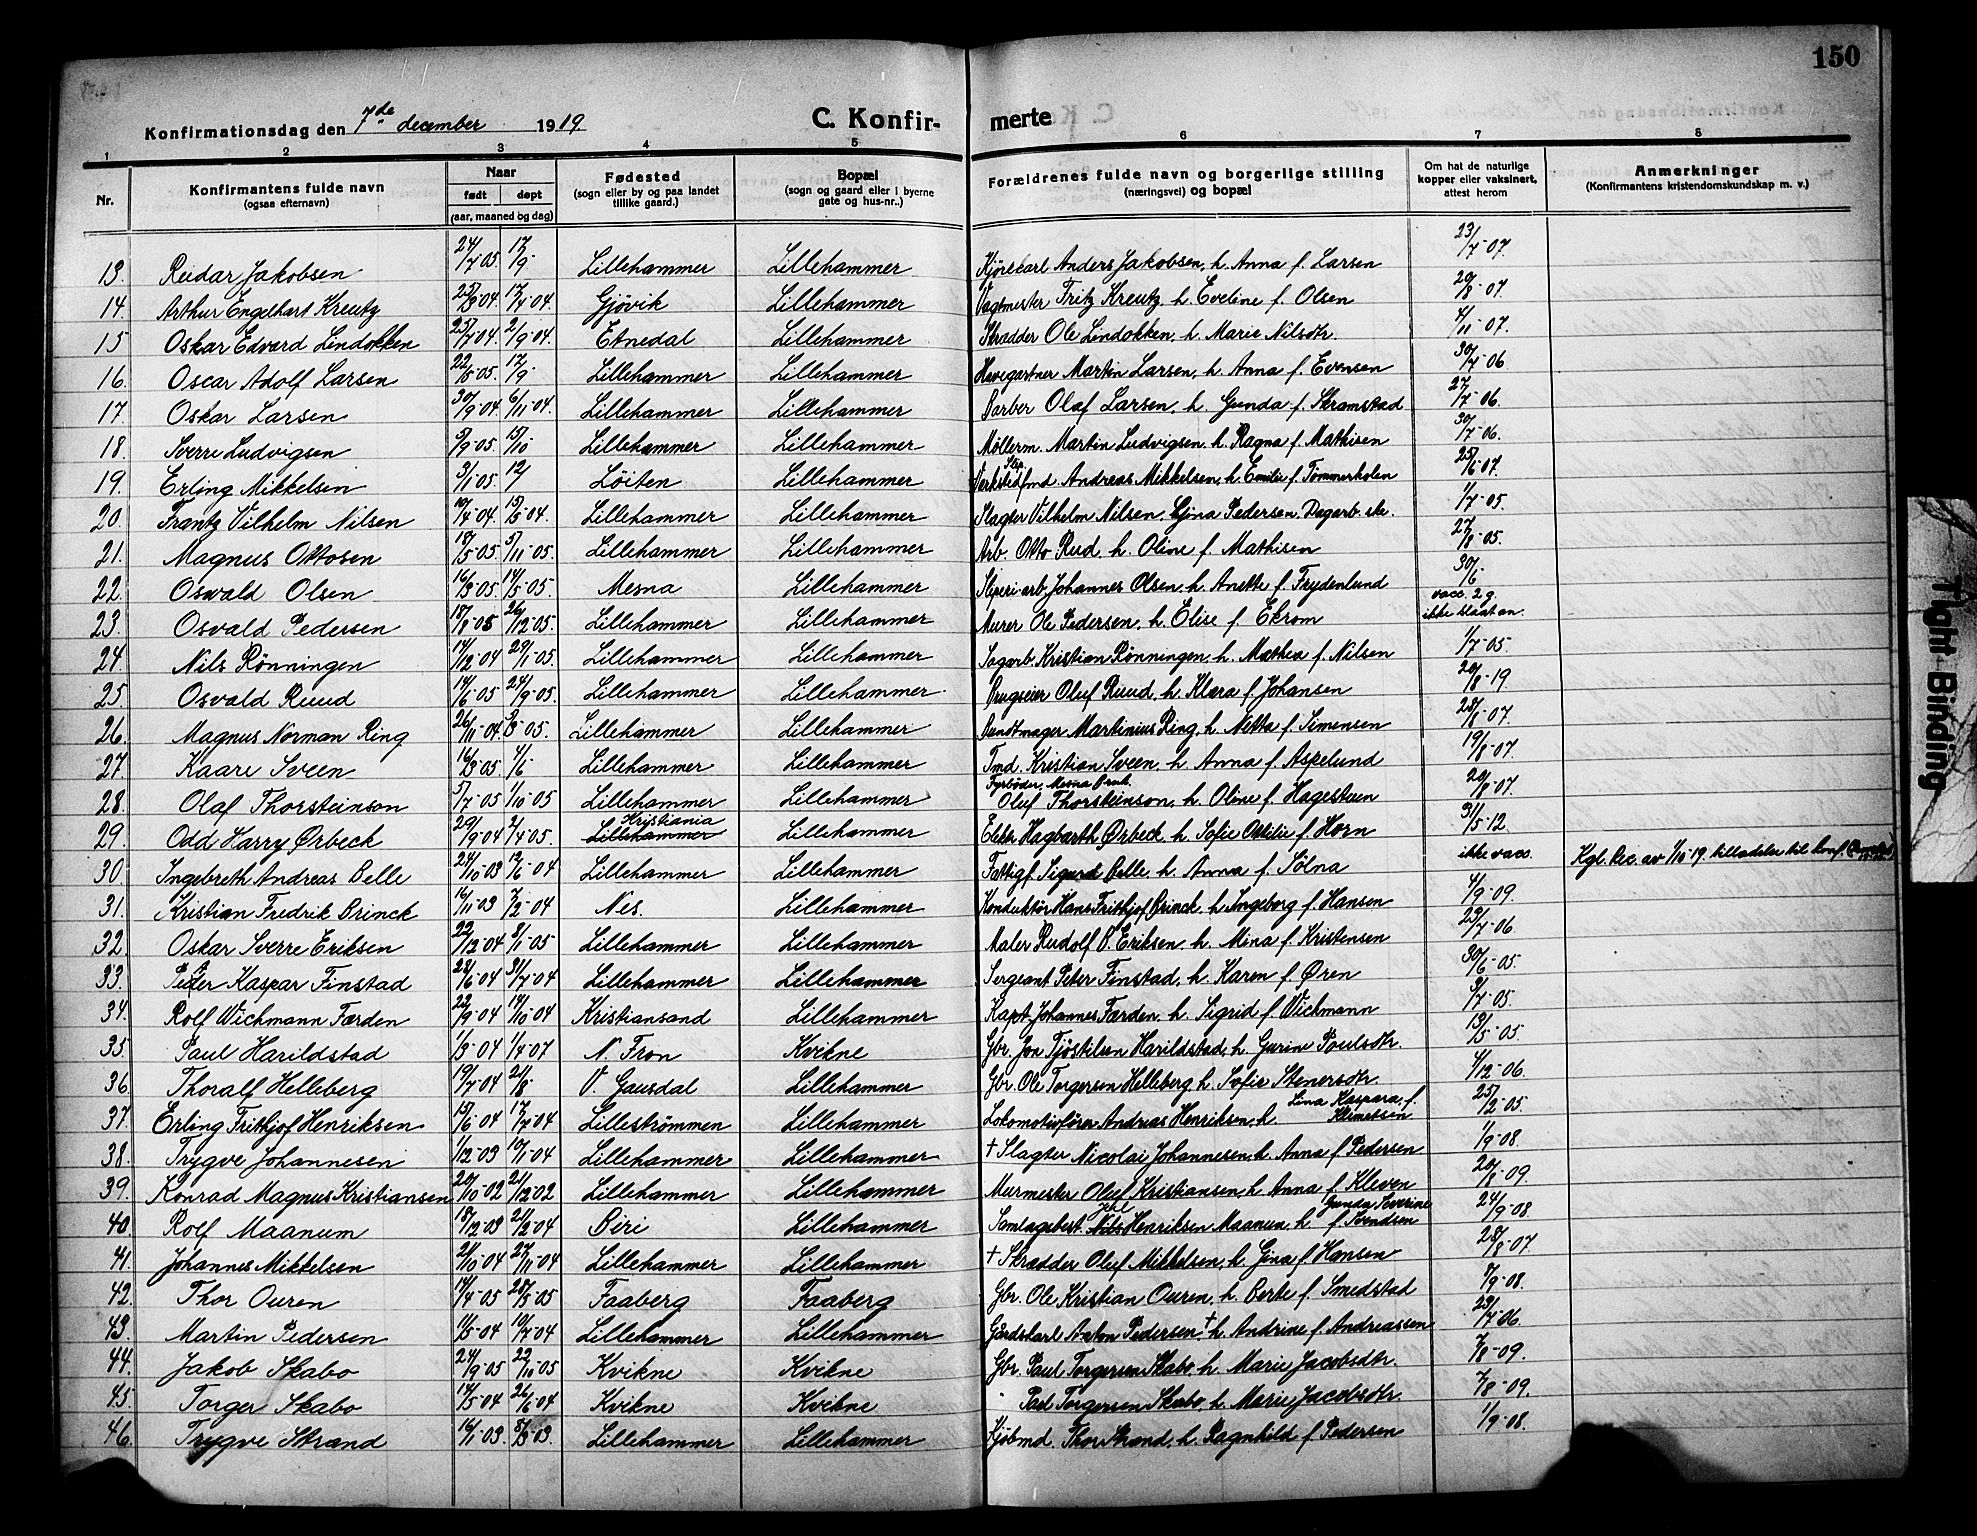 150
Konfirmationsdag den 7de december 1919 C. Konfir- merte
1 2 3 4 5 6 7 8
Nr. Konfirmantens fulde navn (ogsaa efternavn) Naar født døpt (aar, maaned og dag) Fødested (sogn eller by og paa landet tillike gaard.) Bopæl (sogn og gaard eller i byerne gate og hus-nr..) Forældrenes fulde navn og borgerlige stilling (næringsvei) og bopæl Om hat de naturlige kopper eller vaksinert, attest herom Anmerkninger (Konfirmantens kristendomskundskap m. v.)
13. Reidar Jakobsen 24/7 05. 17/9 Lillehammer Lillehammer Kjørekarl Anders Jakobsen, h. Anna f. Larsen 23/7-07.
14. Arthur Engelhart Kreutz 17/4-04. Gjövik Lillehammer Vagtmester Fritz Kreutz, h. Eveline f. Olsen 20/8-07.
15 Oskar Edvard Lindokken 25/7 04. 2/9-04. Etnedal Lillehammer Skrædder Ole Lindokken, h. Marie Nilsdtr. 4/11-07.
16. Oscar Adolf Larsen 17/9 Lillehammer Lillehammer Havegartner Martin Larsen, h. Anna f. Evensen 30/7-06
17. Oskar Larsen 30/9-04. 6/11-04. Lillehammer Lillehammer Barber Olaf Larsen, h. Gunda f. Skramstad 27/7-06.
18. Sverre Ludvigsen 5/9-05. 15/10 Lillehammer Lillehammer Møllerm. Martin Ludvigsen, h. Ragna f. Mathisen 30/7-06.
19. Erling Mikkelsen 3/1 05. Löiten Lillehammer Verkstedfmd Andreas Mikkelsen, h. Emilie f. Tømmerholen 25/6 07.
20. Frantz Vilhelm Nilsen 10/4-04. 15/5-04. Lillehammer Lillehammer Slagter Vilhelm Nilsen, Gina Pedersen. Dagarb. ske. 1/7-05.
21. Magnus Ottosen 18/5 05 5/11-05. Lillehammer Lillehammer Arb. Otto Rud, h. Oline f. Mathisen 27/8-05.
22. Oswald Olsen 16/3 05. 14/5-05. Mesna Lillehammer Sliperi-arb Johannes Olsen, h. Anette f. Frydenlund 30/6
23. Osvald Pedersen 18/8-05 26/12-05. Lillehammer Lillehammer Murer Ole Pedersen, h. Elise f. Ekrom vacc. 2 g. ikke slaat an.
24. Nils Rönningen 14/12-04 29/1-05. Lillehammer Lillehammer Sagarb. Kristian Rönningen, h. Mathea f. Nilsen 1/7-05.
25. Osvald Ruud 14/6 05 24/9-05. Lillehammer Lillehammer. Brugseier Oluf Ruud, h. Klara f. Johansen 20/8-19.
26. Magnus Norman Ring 26/11-04. Lillehammer Lillehammer Buntmager Martinius Ring, h. Netta f. Simensen 28/8-07.
27. Kaare Sveen 16/3-05. 4/6 Lillehammer Lillehammer Tmd. Kristian Sveen, h. Anna f. Aspelund 19/8-07.
28. Olaf Thorsteinson 5/7-05 1/10-05 Lillehammer Lillehammer Fyrbøder, Mesna Bruk. Oluf Thorsteinson, h. Oline f. Hagesteen 20/8-07.
29. Odd Harry Ørbeck 29/9-04 2/4-05. Lillehammer Kristiania Lillehammer Elektr. Hagbarth Ørbeck, h. Sofie Ottilie f. Horn 31/5-12.
30 Ingebreth Andreas Belle 24/10-03 12/6-04 Lillehammer Lillehammer Fattigf. Sigurd Belle, h. Anna f. Sölna ikke vacc. Kgl. Res. av 1/10-19. tilladelse til konf.
31. Kristian Fredrik Brinck 16/11-03 7/2-04 Nes. Lillehammer Konduktör Hans Frithjof Brinck, h. Ingeborg f. Hansen 4/9-09.
32. Oskar Sverre Eriksen 22/12-04 8/1-05 Lillehammer Lillehammer Maler Rudolf B. Eriksen, h. Mina f. Kristensen 23/7-06.
33. Peder Kaspar Finstad 28/6-04 31/7-04 Lillehammer Lillehammer Sergeant Peter Finstad, h. Karen f. Øren 30/6-05.
34. Rolf Wichmann Færden 22/9-04 14/10-04 Kristiansand Lillehammer Kapt. Johannes Færden, h. Sigrid f. Wichmann 9/7-05.
35. Paul Harildstad 1/3-04 1/4-07 N. Fron Kvikne Gbr. Jon Tjöstilsen Harildstad, h. Gurine Poulsdtr. 13/5-05.
36. Thoralf Helleberg 19/7-04 21/8. V. Gausdal Lillehammer Gbr. Ole Torgersen Helleberg, h. Sofie Stenersdtr. 4/12-06.
37. Erling Frithjof Henriksen 15/6-04 17/7-04 Lilleströmmen Lillehammer Lokomotivfører Andreas Henriksen, h. Lina Kaspara, f. Klemetsen 25/2-05.
38. Trygve Johannesen 1/12-03 10/1-04 Lillehammer Lillehammer † Slagter Nicolai Johannesen, h. Anna f. Pedersen 1/9-08.
39. Konrad Magnus Kristiansen 20/10-02 21/12-02 Lillehammer Lillehammer Murmester Oluf Kristiansen, h. Anna f. Kleven 20/8-09.
40. Rolf Maanum 18/12-03 21/2-04 Biri Lillehammer Samlagsbest. Nils Henriksen Maanum, h. Gunda Severine f. Svendsen 24/9-08.
41. Johannes Mikkelsen 21/10-04 27/11-04 Lillehammer Lillehammer † Skrædder Oluf Mikkelsen, h. Gina f. Hansen 28/8-07.
42. Thor Ouren 14/4-05 28/5-05 Faaberg Faaberg Gbr. Ole Kristian Ouren, h. Berte f. Smedstad 7/9-08.
43. Martin Pedersen 11/5-04 10/7-04 Lillehammer Lillehammer Gårdskarl Anton Pedersen † h. Andrine f. Andreassen 23/7-06.
44. Jakob Skabo 24/9-05 22/10-05 Kvikne Kvikne Gbr. Paul Torgersen Skabo, h. Marie Jacobsdtr. 7/8-09.
45. Torger Skabo 14/5-04 26/6-04 Kvikne Kvikne " Paul Torgersen Skabo, h. Marie Jacobsdtr. 7/8-09.
46. Trygve Strand 16/1-03 8/3-03. Lillehammer Lillehammer Kjöbmd. Thor Strand, h. Ragnhild f. Pedersen 1/9-08.
Tight Binding